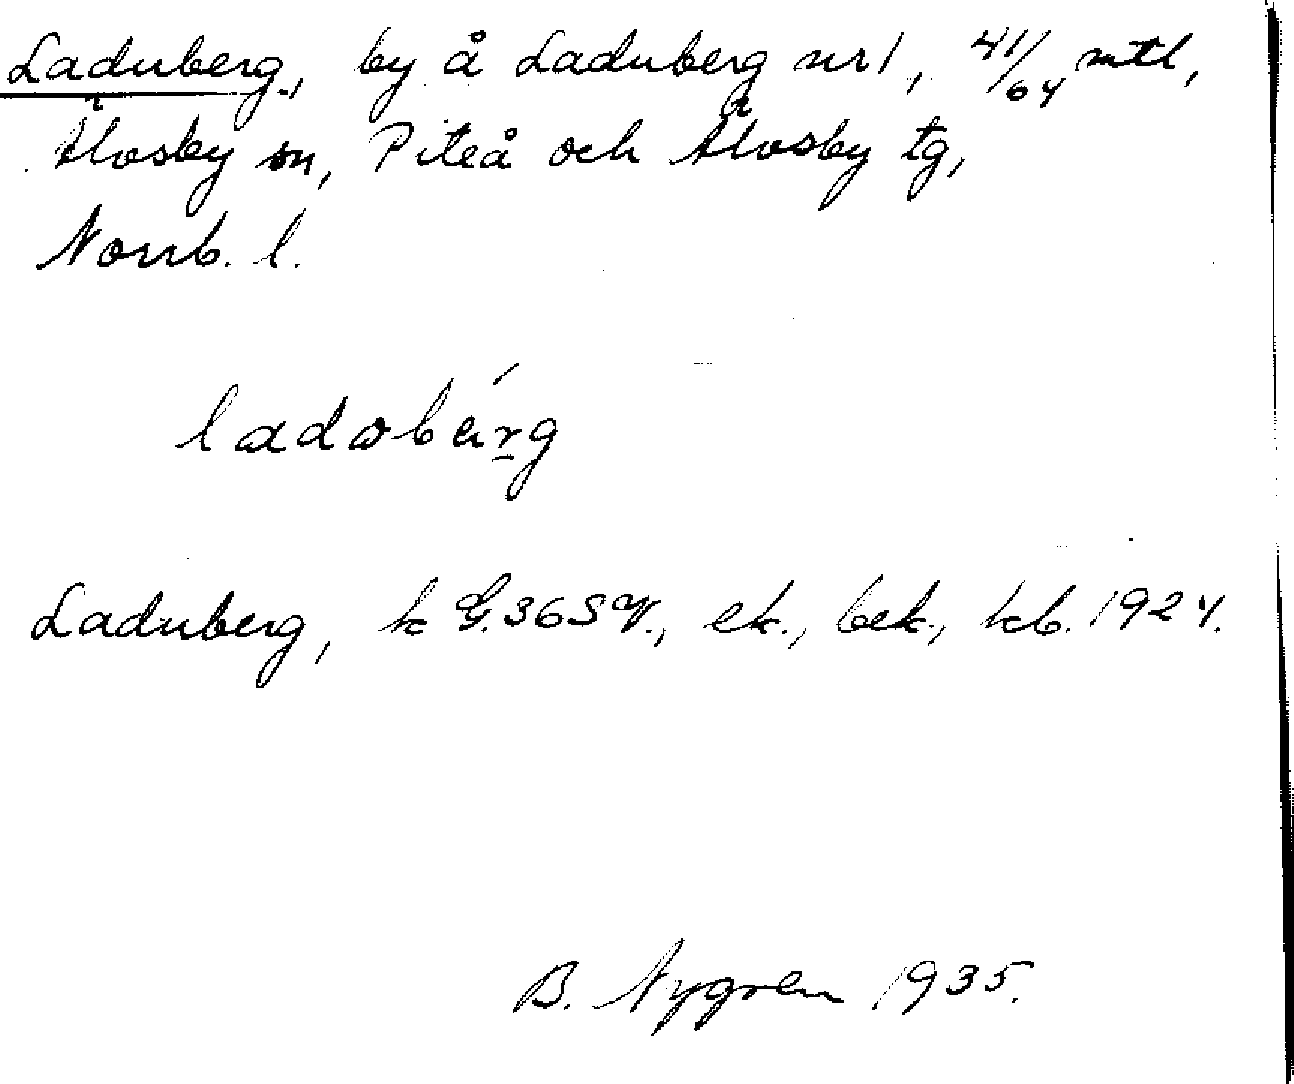 Laduberg, by å Laduberg nr 1, 41/64 mtl,
Älvsby sn, Piteå och Älvsby tg,
Norrb. l.
ladobärg
Laduberg, k G. 365 V., ek., bek., kb. 1924.
B. Nygren 1935.